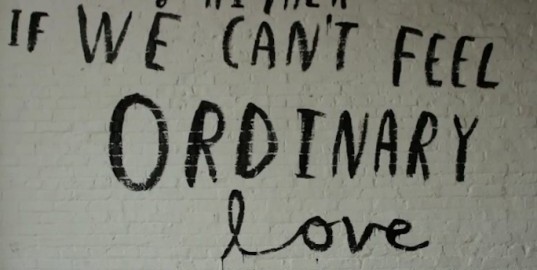 IF WE CAN'T FEEL
ORDINARY
love